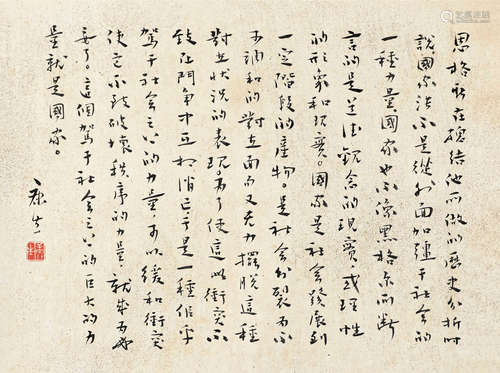 恩格斯在總結他所做的歷史分析时
說國家决不是從外面加强于社会的
一種力量國家也不像黑格尔所断
言的是道德觀念的現實或理性
的形象和現實。國家是社会發展到
一定階段的產物。是社会分裂為不
可调和的對立面而又无力擺脫這種
對立状况的表現。为了使這些衝突不
致在鬥争中互相消亡于是一種似乎
駕于社会之上的力量,可以緩和衝突
使它不致破壞秩序的力量,就成为必
要了。這個駕于社会之上的巨大的力
量就是國家。
康生